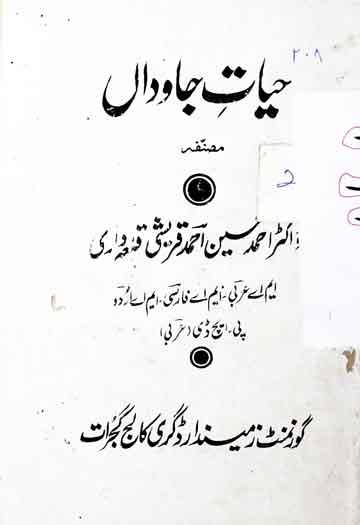 ۲۰۸
حیاتِ جاوداں
مصنّفہ
2
ڈاکٹر احمد حسین احمد قریشی قلعہ داری
ایم اے عربی۔ ایم اے فارسی۔ ایم اے اردو
پی۔ ایچ ڈی (عربی)
گورنمنٹ زمیندار ڈگری کالج گجرات